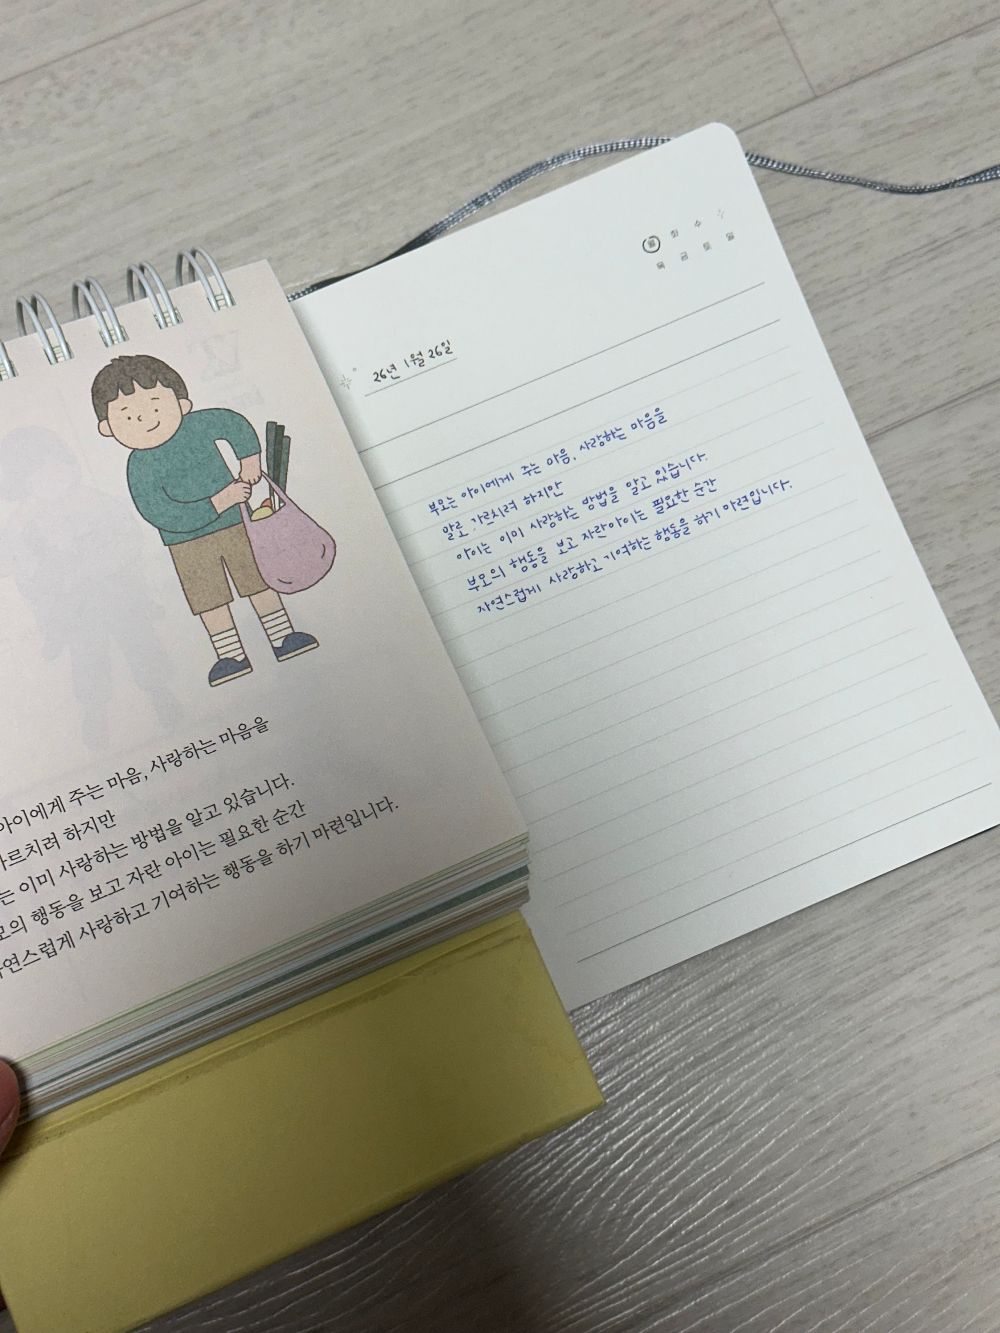 아이에게 주는 마음, 사랑하는 마음을
가르치려 하지만
는 이미 사랑하는 방법을 알고 있습니다.
모의 행동을 보고 자란 아이는 필요한 순간
자연스럽게 사랑하고 기여하는 행동을 하기 마련입니다.
월 화 수
목 금 토 일
26년 1월 26일
부모는 아이에게 주는 마음, 사랑하는 마음을
말로 가르치려 하지만
아이는 이미 사랑하는 방법을 알고 있습니다.
부모의 행동을 보고 자란아이는 필요한 순간
자연스럽게 사랑하고 기여하는 행동을 하기 마련입니다.